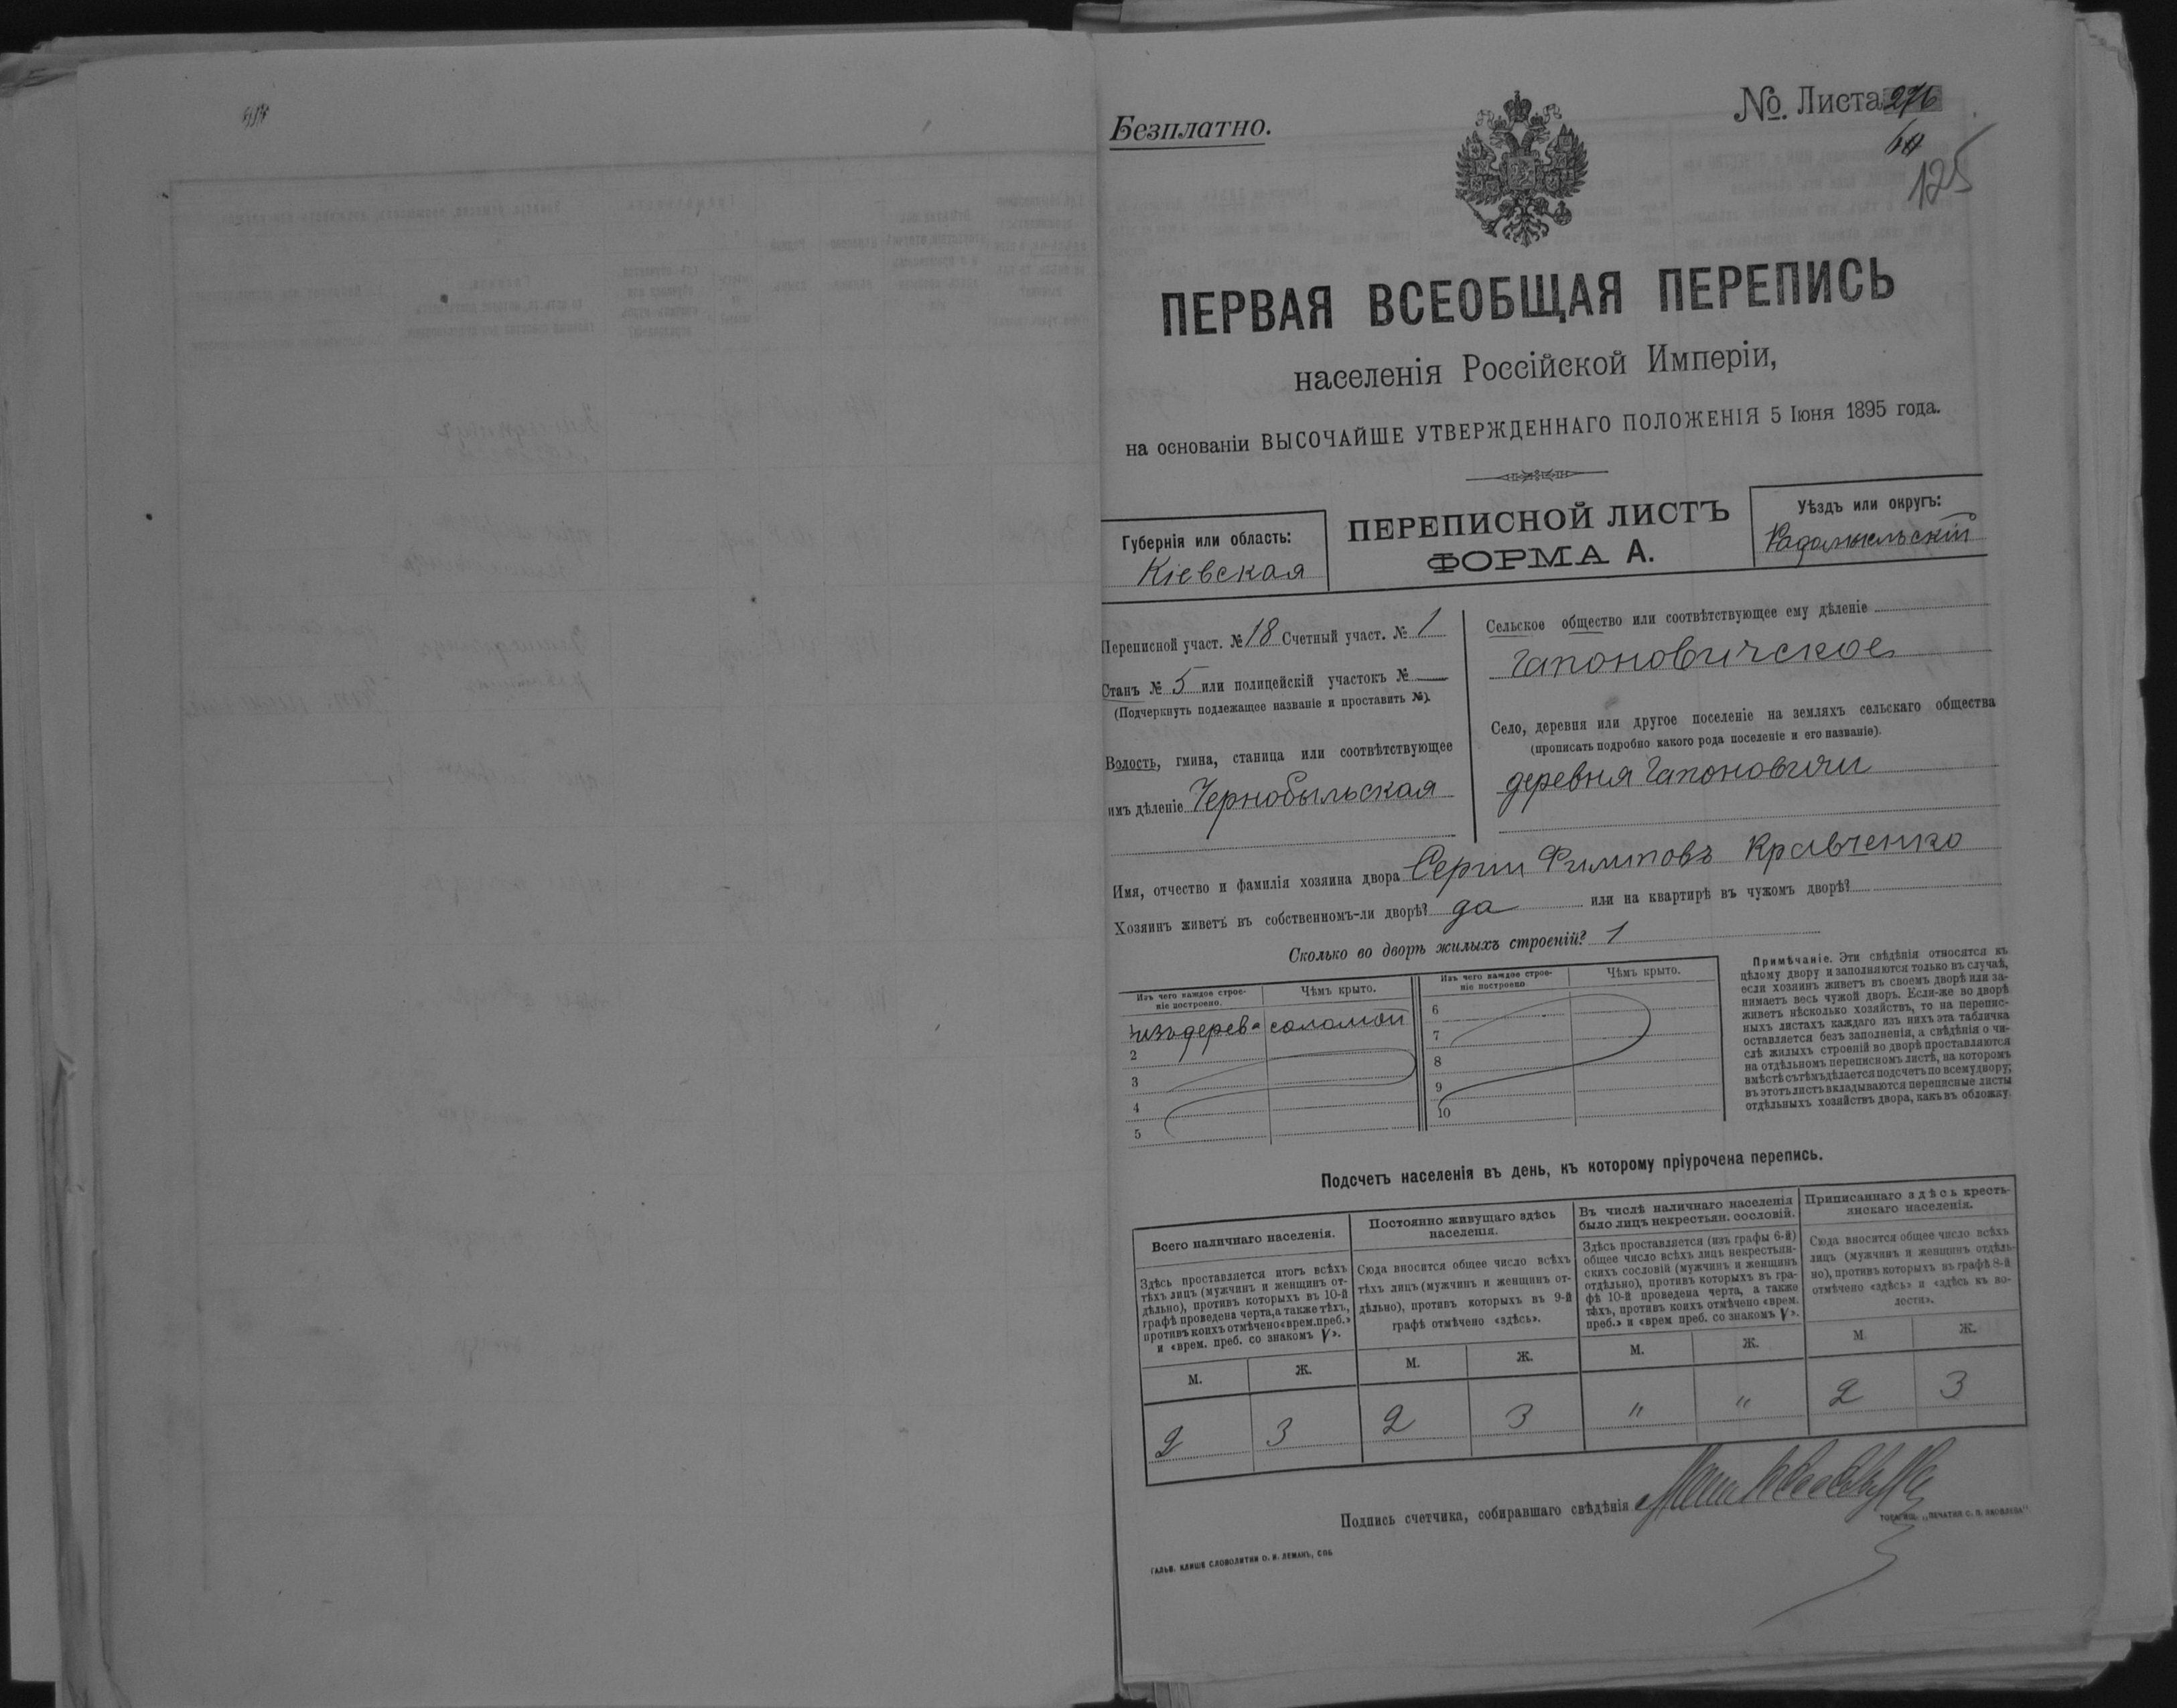 Безплатно.
№. Листа 276
60
125
ПЕРВАЯ ВСЕОБЩАЯ ПЕРЕПИСЬ
населенія Россійской Имперіи,
на основаніи ВЫСОЧАЙШЕ УТВЕРЖДЕННАГО ПОЛОЖЕНІЯ 5 Іюня 1895 года.
Губернія или область:
Кіевская
ПЕРЕПИСНОЙ ЛИСТЪ
ФОРМА А.
Уѣздъ или округъ:
Радомысльскій
Переписной участ. № 18 Счетный участ. № 1
Станъ № 5 или полицейскій участокъ № —
(Подчеркнуть подлежащее названіе и проставить №).
Волость, гмина, станица или соотвѣтствующее
имъ дѣленіе Чернобыльская
Сельское общество или соотвѣтствующее ему дѣленіе
Гапоновичское
Село, деревня или другое поселеніе на земляхъ сельскаго общества
(прописать подробно какого рода поселеніе и его названіе).
деревня Гапоновичи
Имя, отчество и фамилія хозяина двора Сергій Филиповъ Кравченко
Хозяинъ живетъ въ собственномъ-ли дворѣ? да или на квартирѣ въ чужомъ дворѣ?
Сколько во дворѣ жилыхъ строеній? 1
Изъ чего каждое строе-
ніе построено.
Чѣмъ крыто.
изъ дерева соломой
2
3
4
5
Изъ чего каждое строе-
ніе построено
Чѣмъ крыто.
6
7
8
9
10
Примѣчаніе. Эти свѣдѣнія относятся къ
цѣлому двору и заполняются только въ случаѣ,
если хозяинъ живетъ въ своемъ дворѣ или за-
нимаетъ весь чужой дворъ. Если-же во дворѣ
живетъ нѣсколько хозяйствъ, то на перепис-
ныхъ листахъ каждаго изъ нихъ эта табличка
оставляется безъ заполненія, а свѣдѣнія о чи-
слѣ жилыхъ строеній во дворѣ проставляются
на отдѣльномъ переписномъ листѣ, на которомъ
вмѣстѣ съ тѣмъ дѣлается подсчетъ по всему двору;
въ этотъ листъ вкладываются переписные листы
отдѣльныхъ хозяйствъ двора, какъ въ обложку.
Подсчетъ населенія въ день, къ которому пріурочена перепись.
Всего наличнаго населенія.
Здѣсь проставляется итогъ всѣхъ
тѣхъ лицъ (мужчинъ и женщинъ от-
дѣльно), противъ которыхъ въ 10-й
графѣ проведена черта, а также тѣхъ,
противъ коихъ отмѣчено «врем. преб.»
и «врем. преб. со знакомъ V».
М. Ж.
2 3
Постоянно живущаго здѣсь
населенія.
Сюда вносится общее число всѣхъ
тѣхъ лицъ (мужчинъ и женщинъ от-
дѣльно), противъ которыхъ въ 9-й
графѣ отмѣчено «здѣсь».
М. Ж.
2 3
Въ числѣ наличнаго населенія
было лицъ некрестьян. сословій.
Здѣсь проставляется (изъ графы 6-й)
общее число всѣхъ лицъ некрестьян-
скихъ сословій (мужчинъ и женщинъ
отдѣльно), противъ которыхъ въ гра-
фѣ 10-й проведена черта, а также
тѣхъ, противъ коихъ отмѣчено «врем.
преб.» и «врем преб. со знакомъ V».
М. Ж.
" "
Приписаннаго здѣсь кресть-
янскаго населенія.
Сюда вносится общее число всѣхъ
лицъ (мужчинъ и женщинъ отдѣль-
но), противъ которыхъ въ графѣ 8-й
отмѣчено «здѣсь» и «здѣсь къ во-
лости».
М Ж.
2 3
Подпись счетчика, собиравшаго свѣдѣнія
ГАЛЬВ. КЛИШЕ СЛОВОЛИТНИ О. И. ЛЕМАНЪ, СПБ.
ТОВАРИЩ. „ПЕЧАТНЯ С. П. ЯКОВЛЕВА"